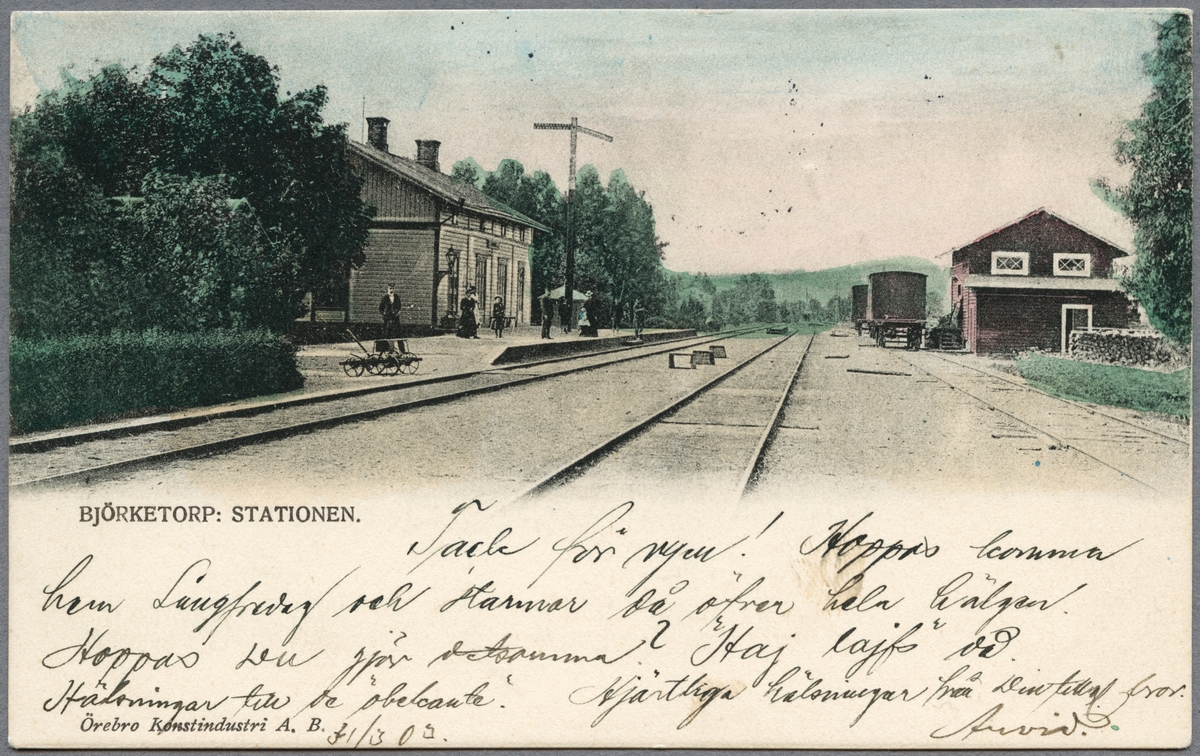 BJÖRKETORP: STATIONEN.
Tack för vyen! Hoppas komma
hem Långfredag och stannar då öfver hela hälgen.
Hoppas Du gjör detsamma? "Haj lajf" då.
Hälsningar till de "obekanta". Hjärtliga hälsningar från Din bror.
Arvid.
Örebro Konstindustri A. B. 31/3 03.